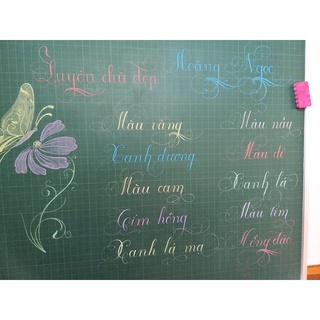 Luyện chữ đẹp Hoàng Ngọc
Màu vàng
Xanh dương
Màu cam
Tím hồng
Xanh lá mạ
Màu này
Màu đỏ
Xanh lá
Màu tím
Hồng